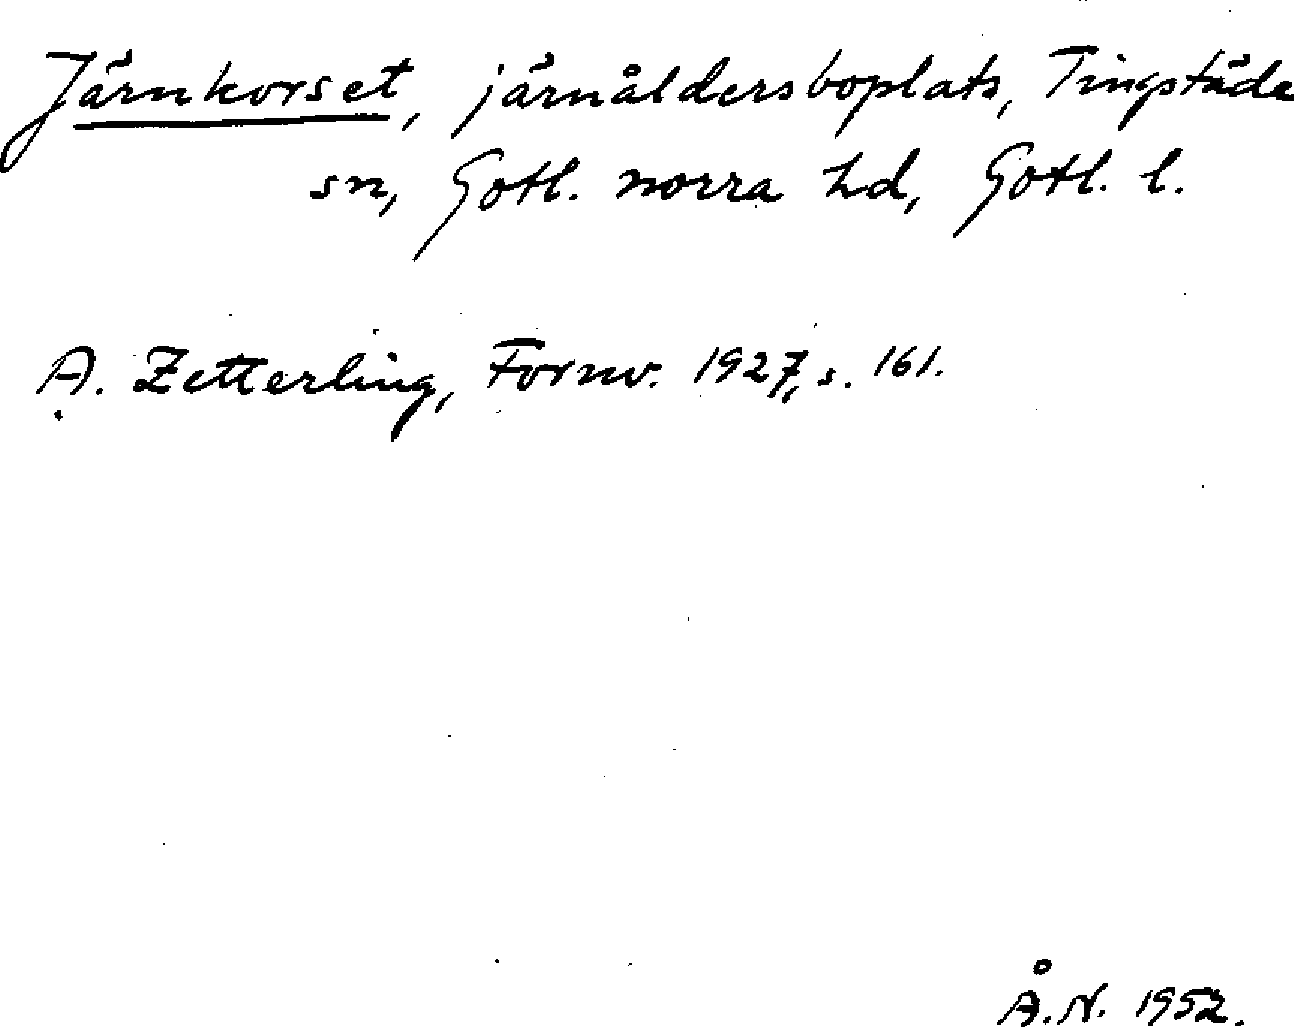 Järnkorset, järnåldersboplats, Tingstäde
sn, Gotl. norra hd, Gotl. l.
A. Zetterling, Fornv. 1927, s. 161.
Å.N. 1952.